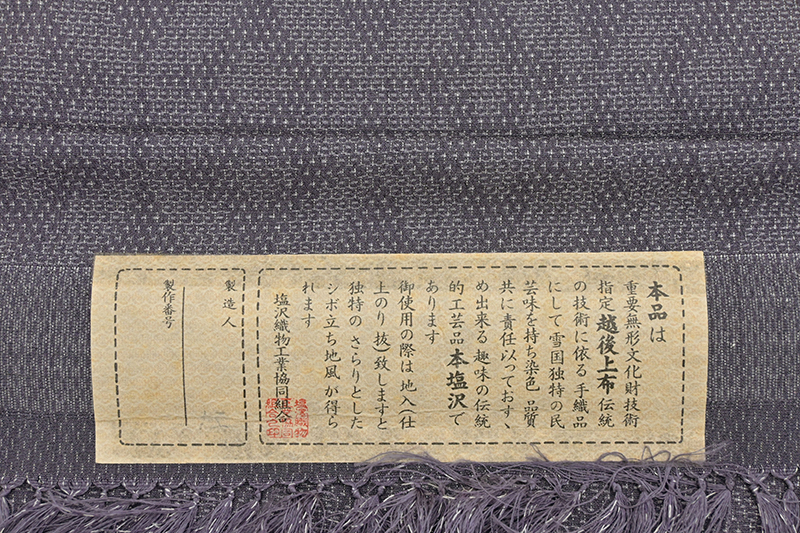 本品は
重要無形文化財技術
指定越後上布伝統
の技術に依る手織品
にして雪国独特の民
芸味を持ち染色品質
共に責任以っておすゝ
め出来る趣味の伝統
的工芸品本塩沢で
あります
御使用の際は地入(仕
上のり抜)致しますと
独特のさらりとした
シボ立ち地風が得ら
れます
塩沢織物工業協同組合
製造人
製作番号